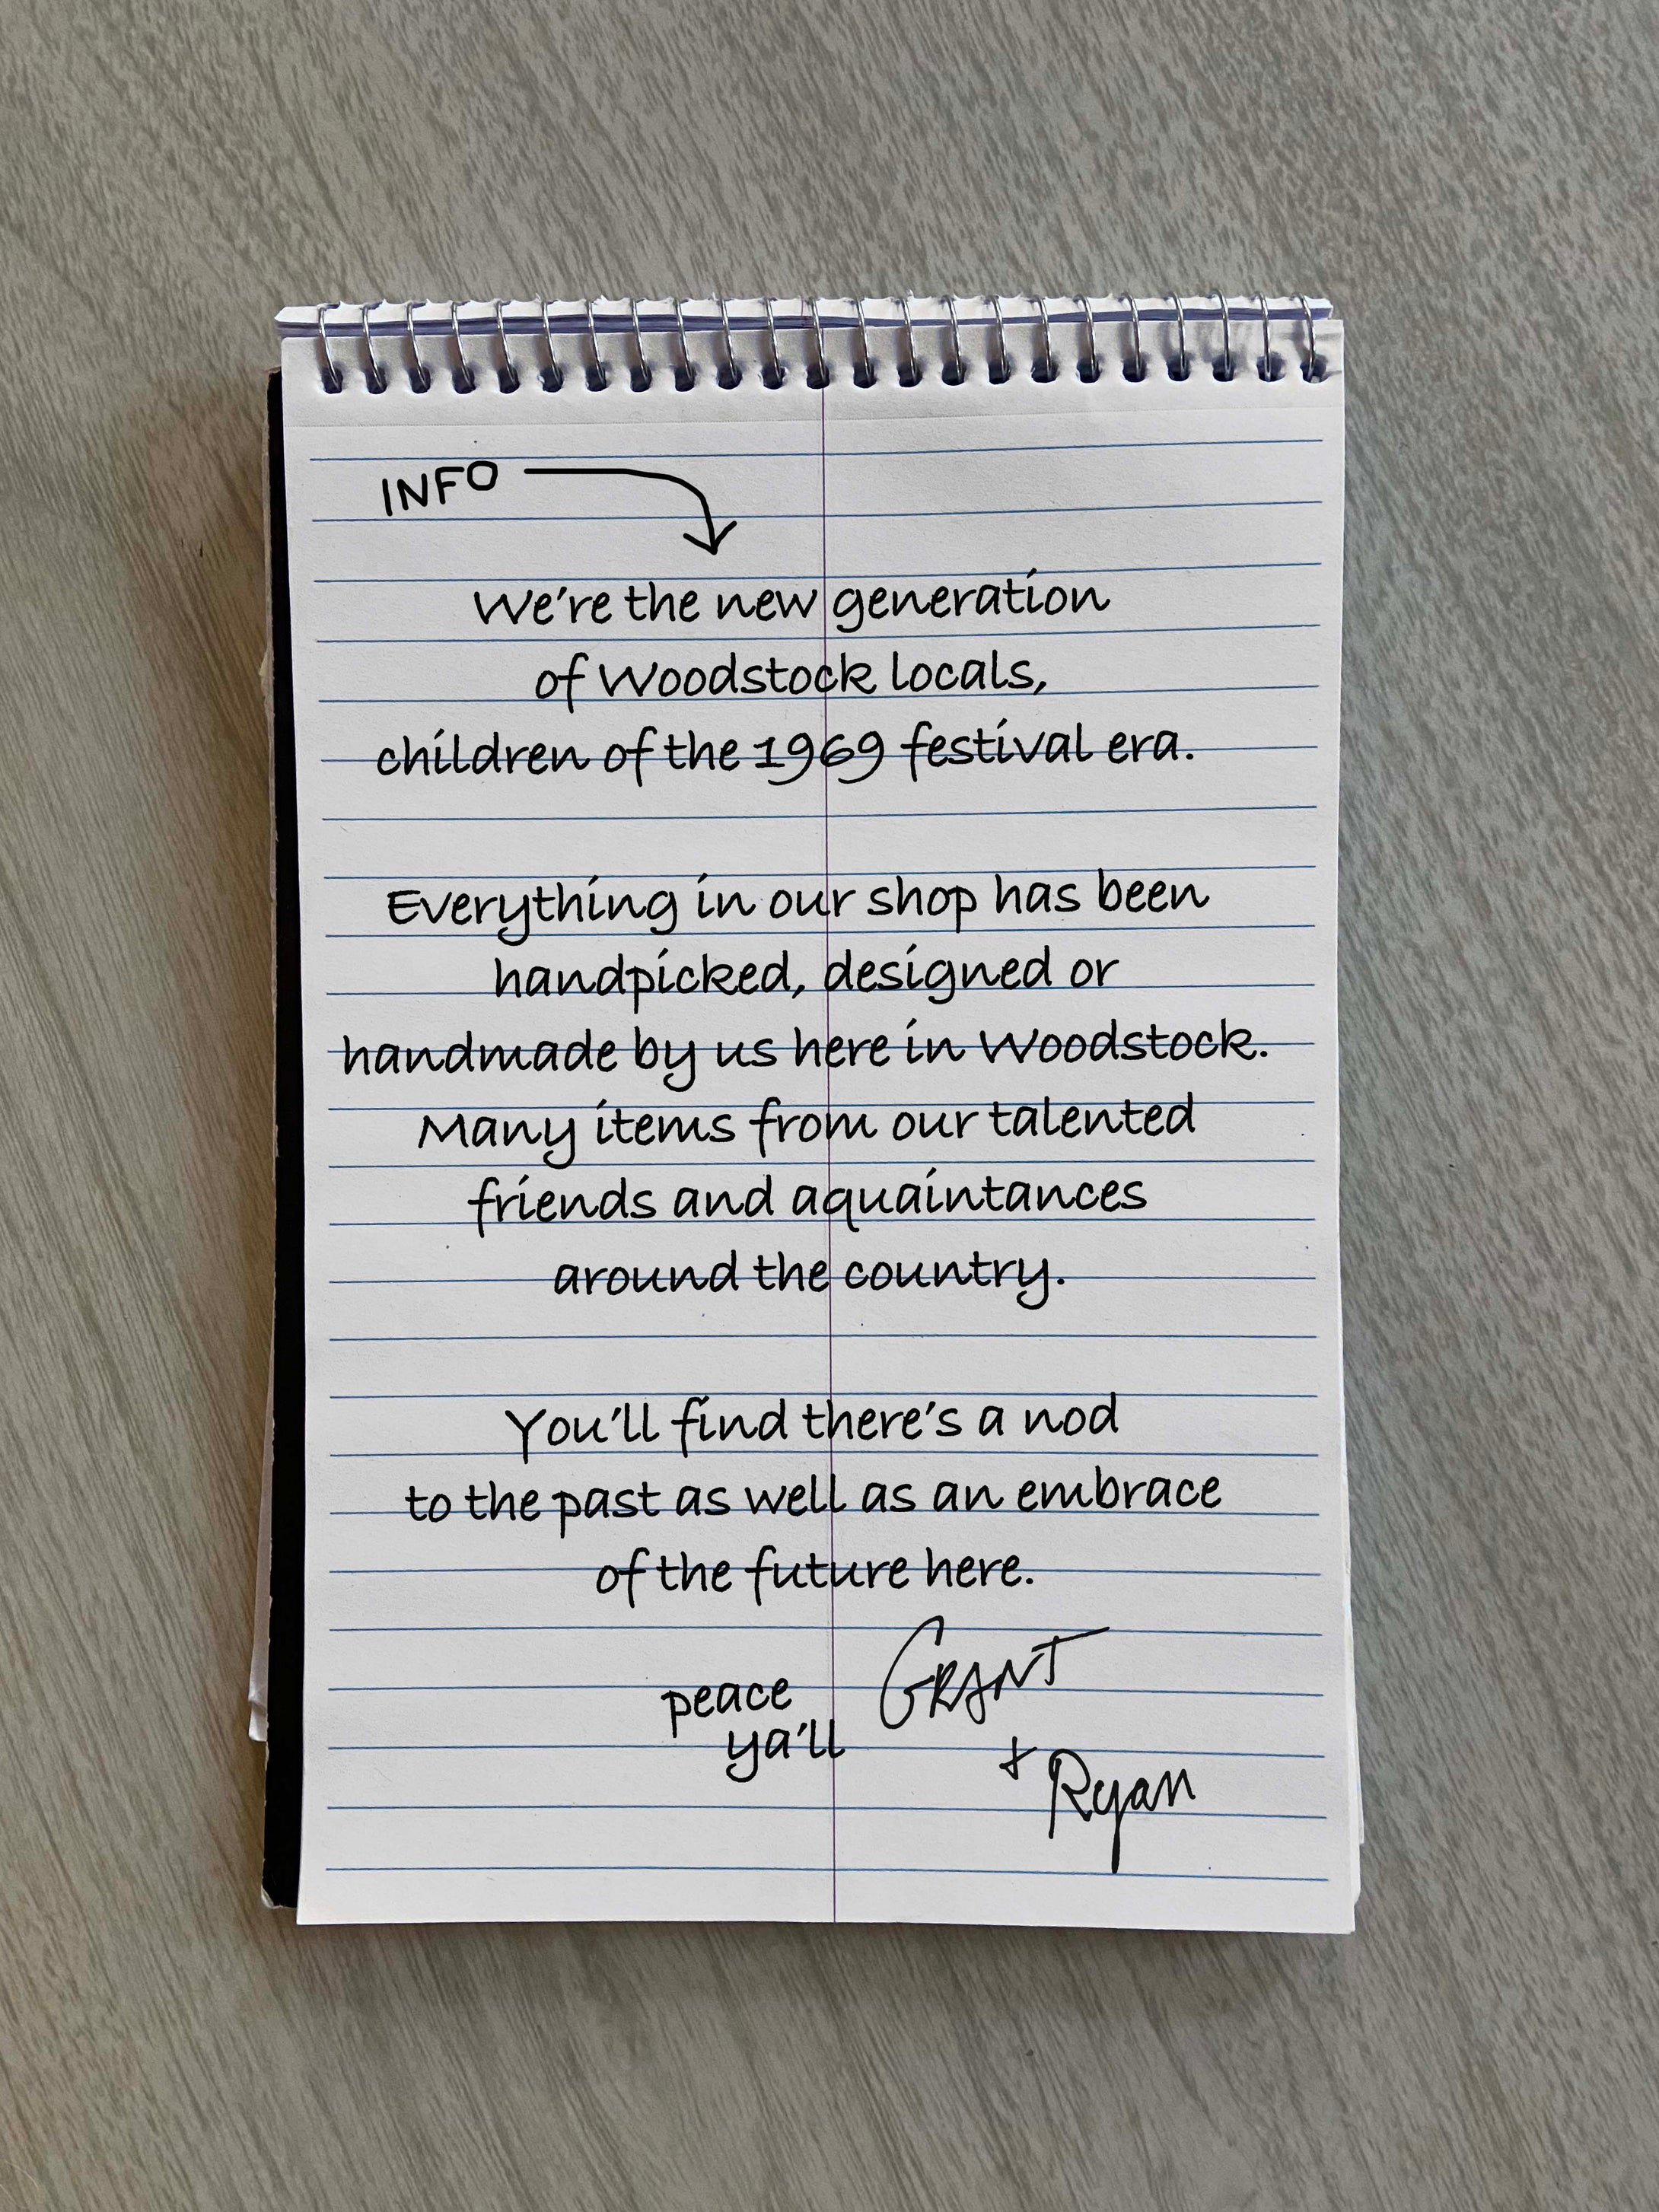 INFO
We're the new generation
of Woodstock locals,
children of the 1969 festival era.
Everything in our shop has been
handpicked, designed or
handmade by us here in Woodstock.
Many items from our talented
friends and aquaintances
around the country.
You'll find there's a nod
to the past as well as an embrace
of the future here.
peace
ya'll
GRANT
+ Ryan